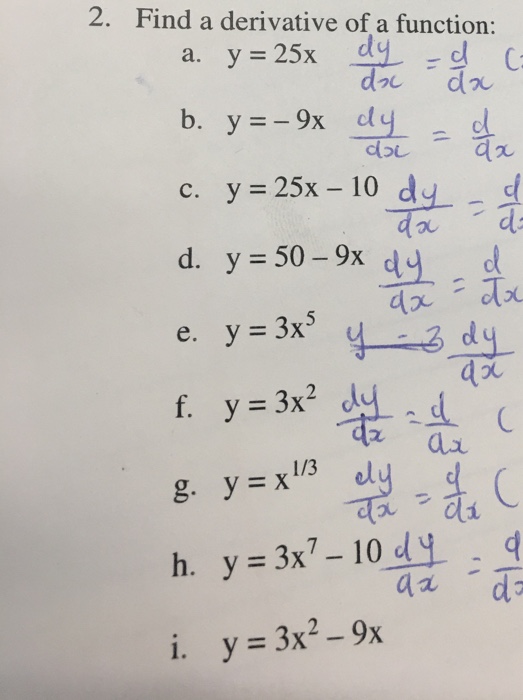 2. Find a derivative of a function:
a. y = 25x dy/dx = d/dx (
b. y = – 9x dy/dx = d/dx
c. y = 25x – 10 dy/dx = d/d
d. y = 50 – 9x dy/dx = d/dx
e. y = 3x⁵ y = 3 dy/dx
f. y = 3x² dy/dx = d/dx (
g. y = x^1/3 dy/dx = d/dx (
h. y = 3x⁷ – 10 dy/dx = d/dx
i. y = 3x² – 9x